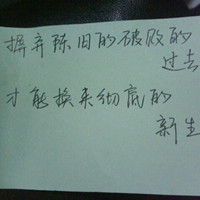 摒弃陈旧的破败的
过去
才能换来彻底的
新生